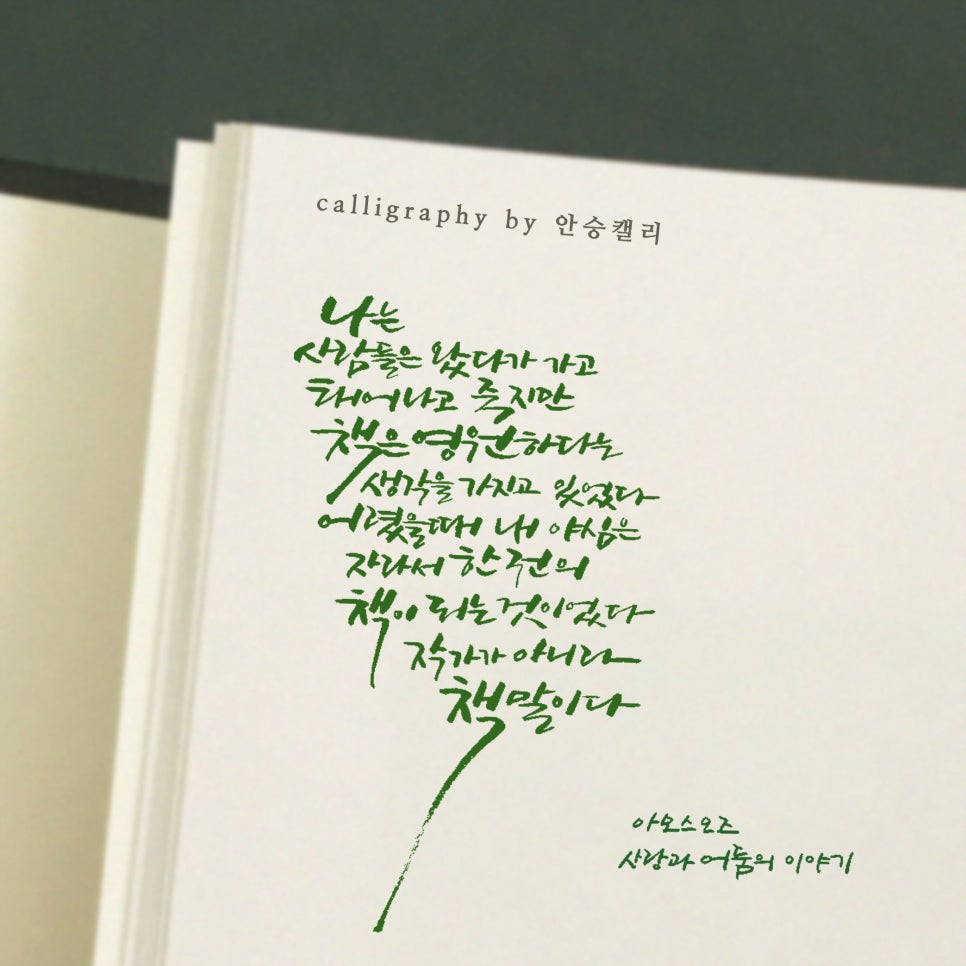 calligraphy by 안승캘리
나는
사람들은 왔다가 가고
태어나고 죽지만
책은 영원하다는
생각을 가지고 있었다
어렸을때 내 야심은
자라서 한권의
책이 되는것이었다
작가가 아니라
책말이다
아모스오즈
사랑과 어둠의 이야기